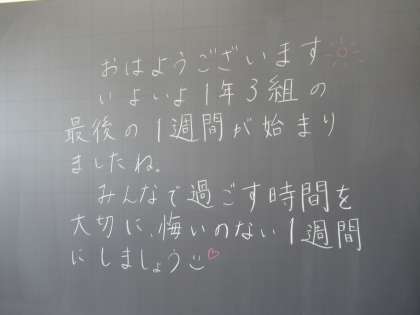 おはようございます
いよいよ1年3組の
最後の1週間が始まり
ましたね。
みんなで過ごす時間を
大切に、悔いのない1週間
にしましょう